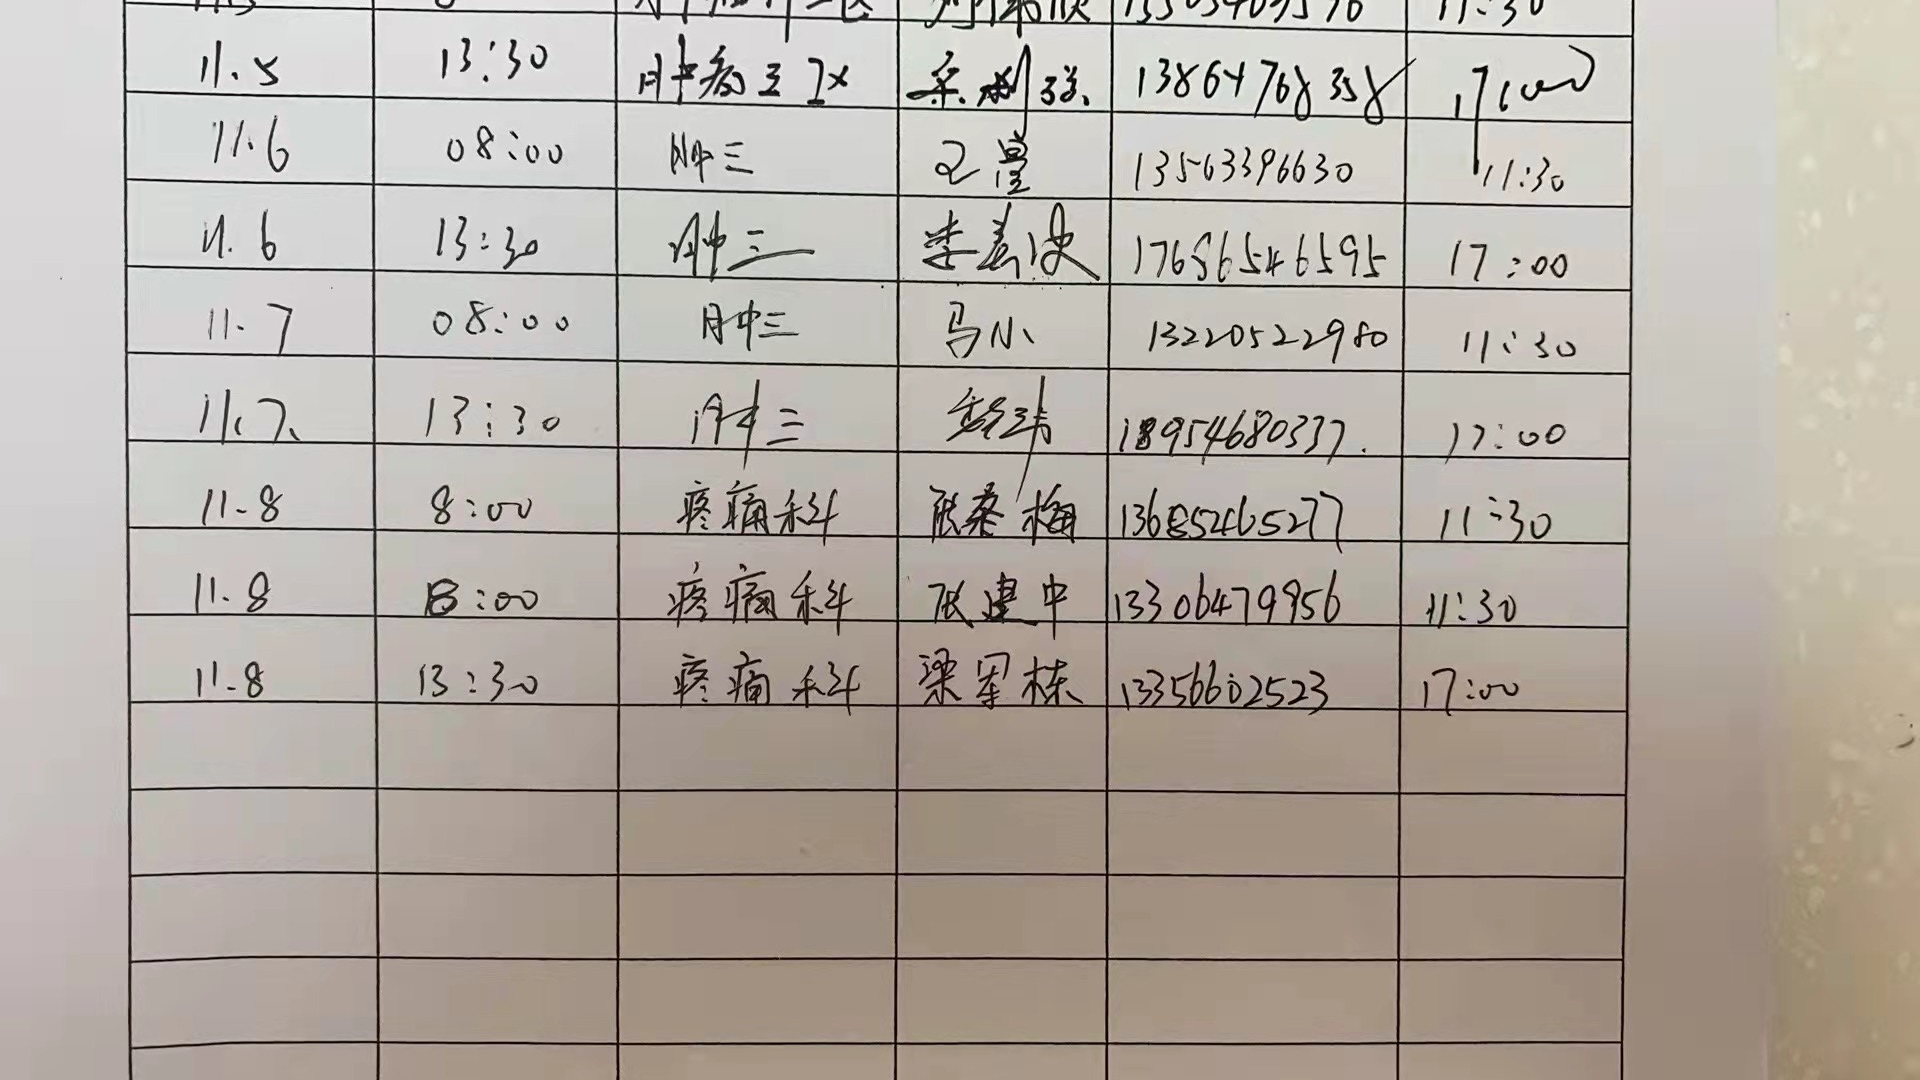 11:30
11.5 13:30 肿病三区 13864768358 17:00
11.6 08:00 肿三 13563396630 11:30
11.6 13:30 肿三 17686546595 17:00
11.7 08:00 肿三 马小 13220522980 11:30
11.7. 13:30 肿三 18954680337. 17:00
11.8 8:00 疼痛科 张桑梅 13685465277 11:30
11.8 8:00 疼痛科 张建中 13306479956 11:30
11.8 13:30 疼痛科 梁军栋 13356602523 17:00